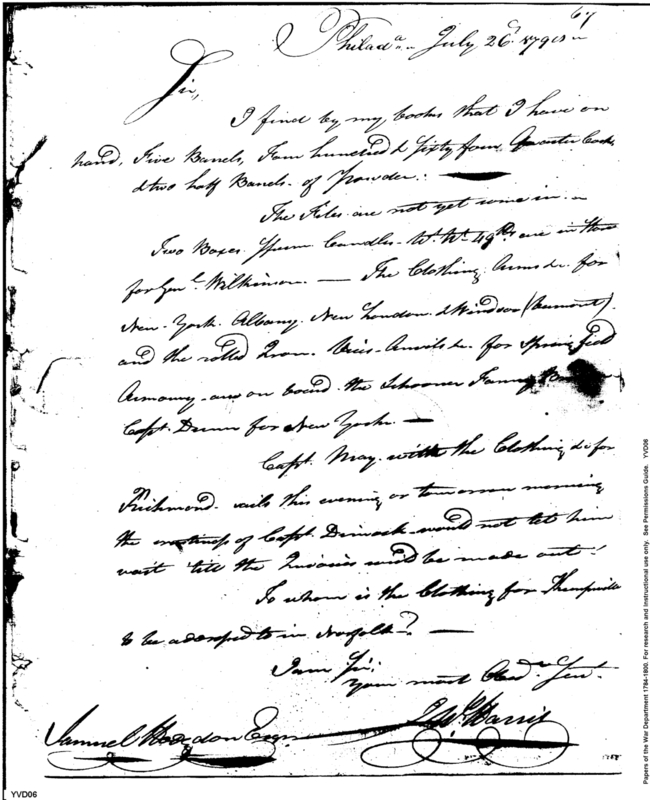 67
Philad.a July 26th 179
Sir,
I find by my books that I have on
hand, Five Barrels, Four hundred & Sixty four Quarter Casks
& two half Barrels of Powder.
The Files are not yet come in
Two Boxes Sperm Candles Wt. 49 lbs are in Store
for Genl. Wilkinson. — The Clothing Arms &c. for
New York. Albany. New London. & Windsor (Vermont)
and the rolled Iron. Vices. Anvils &c. for Spring field
Armoury are on board the Schooner Fanny
Capt. for New York. —
Capt. May with the Clothing &c for
Richmond sails this evening or tomorrow morning
the of Capt. Dimack would not let him
wait 'till the Invoices would be made out.
To whom is the Clothing for
to be addressed to in Norfolk? —
I am Sir,
Your most Obed. Servt.
Harris
Samuel Hodgdon Esqr.
Papers of the War Department 1784-1800. For research and instructional use only. See Permissions Guide. YVD06
YVD06